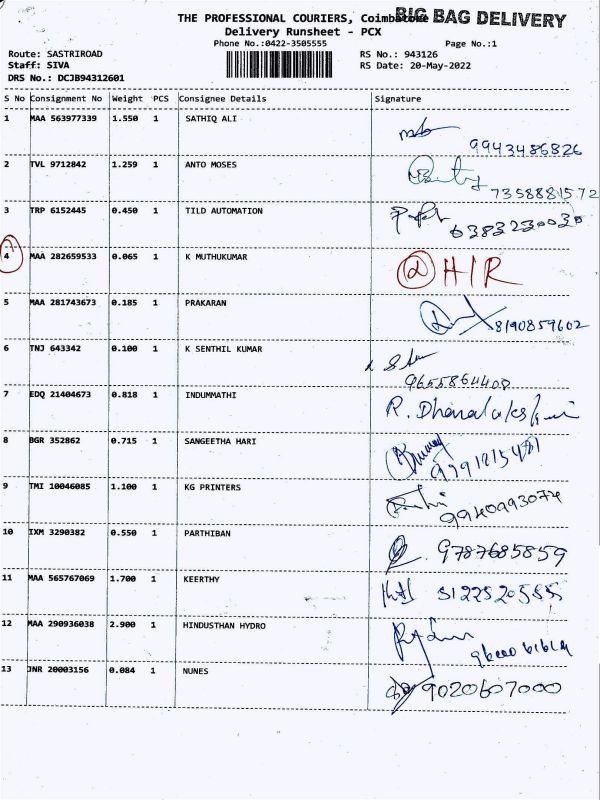 THE PROFESSIONAL COURIERS, Coimbatore BIG BAG DELIVERY
Delivery Runsheet - PCX
Phone No.:0422-3505555 Page No.:1
Route: SASTRIROAD RS No.: 943126
Staff: SIVA RS Date: 20-May-2022
DRS No.: DCJB94312601
S No Consignment No Weight PCS Consignee Details Signature
1 MAA 563977339 1.550 1 SATHIQ ALI
9943486826
2 TVL 9712842 1.259 1 ANTO MOSES
7358881572
3 TRP 6152445 0.450 1 TILD AUTOMATION
6383230030
4 MAA 282659533 0.065 1 K MUTHUKUMAR H/R
5 MAA 281743673 0.185 1 PRAKARAN
8190859602
6 TNJ 643342 0.100 1 K SENTHIL KUMAR
9655864408
7 EDQ 21404673 0.818 1 INDUMMATHI
R. Dhanalakshmi
8 BGR 352862 0.715 1 SANGEETHA HARI
9 TMI 10046085 1.100 1 KG PRINTERS
9940993074
10 IXM 3290382 0.550 1 PARTHIBAN
9787685859
11 MAA 565767069 1.700 1 KEERTHY
12 MAA 290936038 2.900 1 HINDUSTHAN HYDRO
13 JNR 20003156 0.084 1 NUNES
9020607000